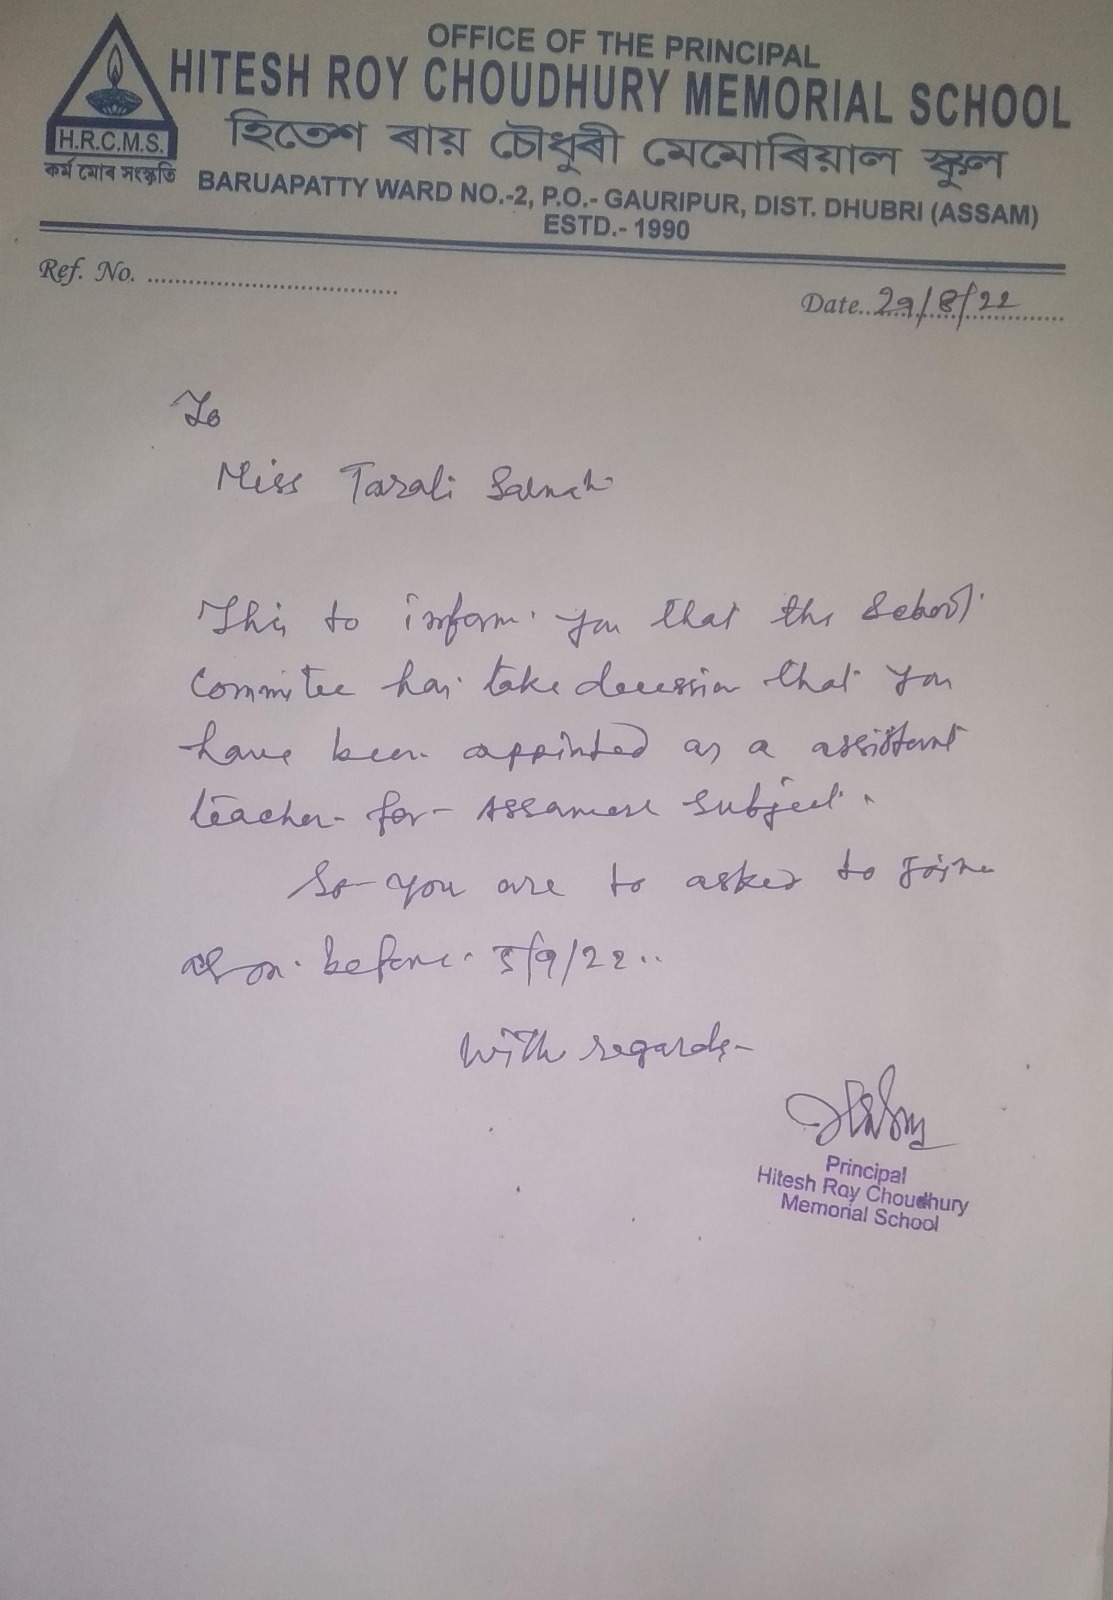 OFFICE OF THE PRINCIPAL
HITESH ROY CHOUDHURY MEMORIAL SCHOOL
হিতেশ ৰায় চৌধুৰী মেমোৰিয়াল স্কুল
H.R.C.M.S.
কৰ্ম মোৰ সংস্কৃতি
BARUAPATTY WARD NO.-2, P.O.- GAURIPUR, DIST. DHUBRI (ASSAM)
ESTD.- 1990
Ref. No. ....................................
Date..29/8/22
To
Miss Tarali
This to inform you that the School
Commitee has take decession that you
have been appinted as a assistant
teacher for Assamese Subject.
So you are to asked to
on before 5/9/22..
With regards-
Principal
Hitesh Roy Choudhury
Memorial School